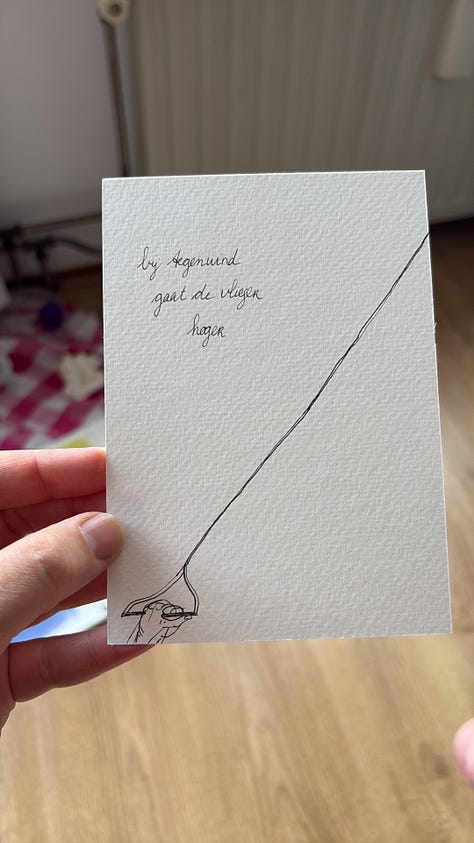 bij tegenwind
gaat de vlieger
hoger